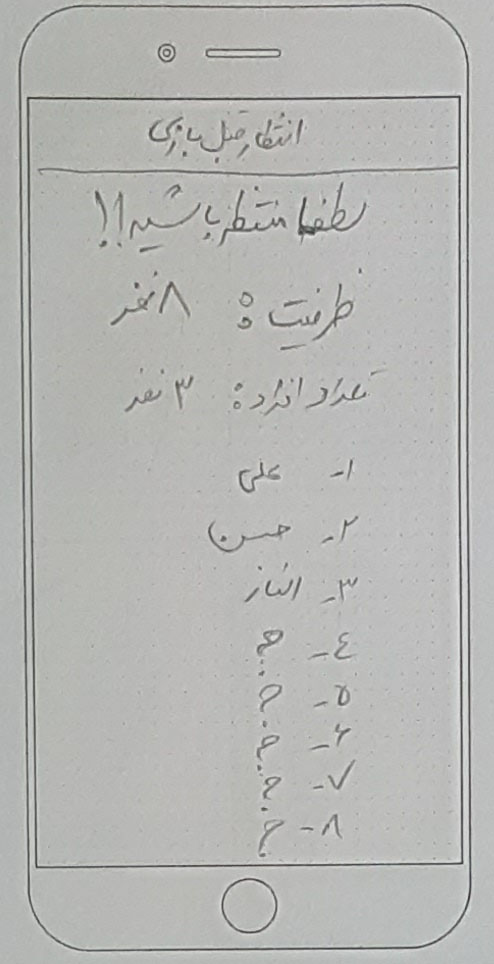 انتظار قبل بازی
لطفا منتظر باشید!!
ظرفیت: ۸ نفر
تعداد افراد: ۳ نفر
۱- علی
۲- حسن
۳- الناز
۴- ؟
۵- ؟
۶- ؟
۷- ؟
۸- ؟